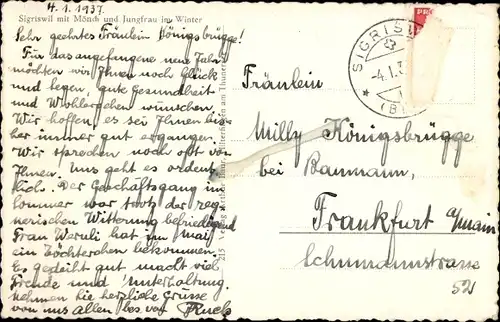 4.1.1937.
Sigriswil mit Mönch und Jungfrau im Winter
Sehr geehrtes Fräulein Königsbrügge!
Für das angefangene neue Jahr
möchten wir Ihnen noch Glück
und Segen, gute Gesundheit
und Wohlergehen wünschen.
Wir hoffen, es sei Ihnen bis-
her immer gut ergangen.
Wir sprechen noch oft von
Ihnen. Uns geht es ordent-
lich. Der Geschäftsgang im
Sommer war trotz der reg-
nerischen Witterung befriedigend
Frau Weruli hat im Mai
ein Töchterchen bekommen.
Es gedeiht gut macht viel
Freude und Unterhaltung.
nehmen Sie herzliche Grüsse
von uns allen bes. von
SIGRIS
-4.1.3
(B
Fräulein
Milly Königsbrügge
bei Baumann,
Frankfurt a/main
Schumannstrasse
52